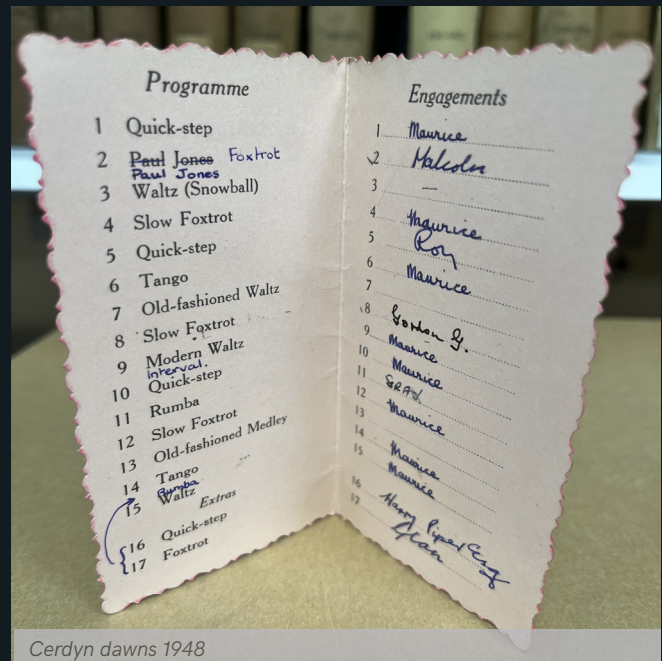 Programme
1 Quick-step
2 Paul Jones Foxtrot
Paul Jones
3 Waltz (Snowball)
4 Slow Foxtrot
5 Quick-step
6 Tango
7 Old-fashioned Waltz
8 Slow Foxtrot
9 Modern Waltz
Interval.
10 Quick-step
11 Rumba
12 Slow Foxtrot
13 Old-fashioned Medley
14 Tango
Rumba
15 Waltz
Extras
16 Quick-step
17 Foxtrot
Engagements
1 Maurice
2 Malcolm
3 —
4 Maurice
5 Roy
6 Maurice
7
8 Gordon G.
9 Maurice
10 Maurice
11
12 Maurice
13
14 Maurice
15 Maurice
16 Harry Piper Esq
17
Cerdyn dawns 1948